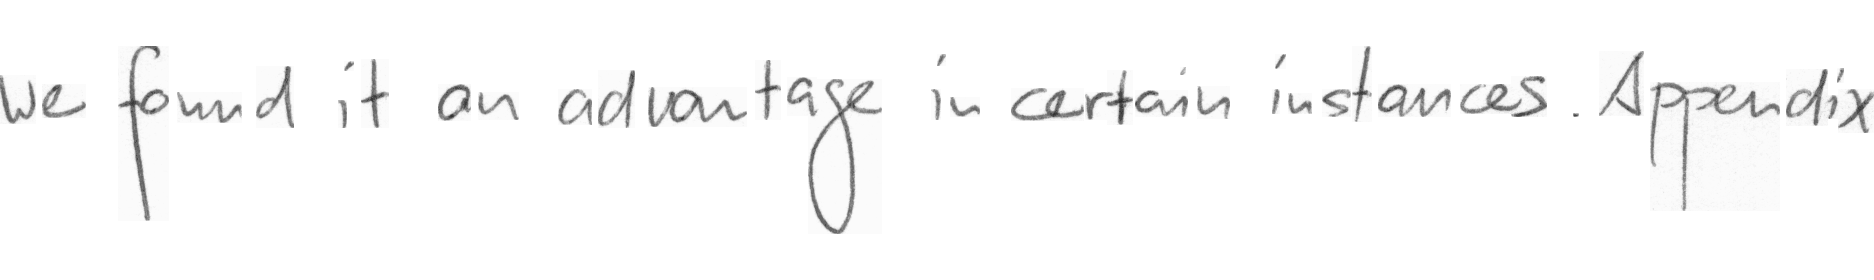 we found it an advantage in certain instances. Appendix